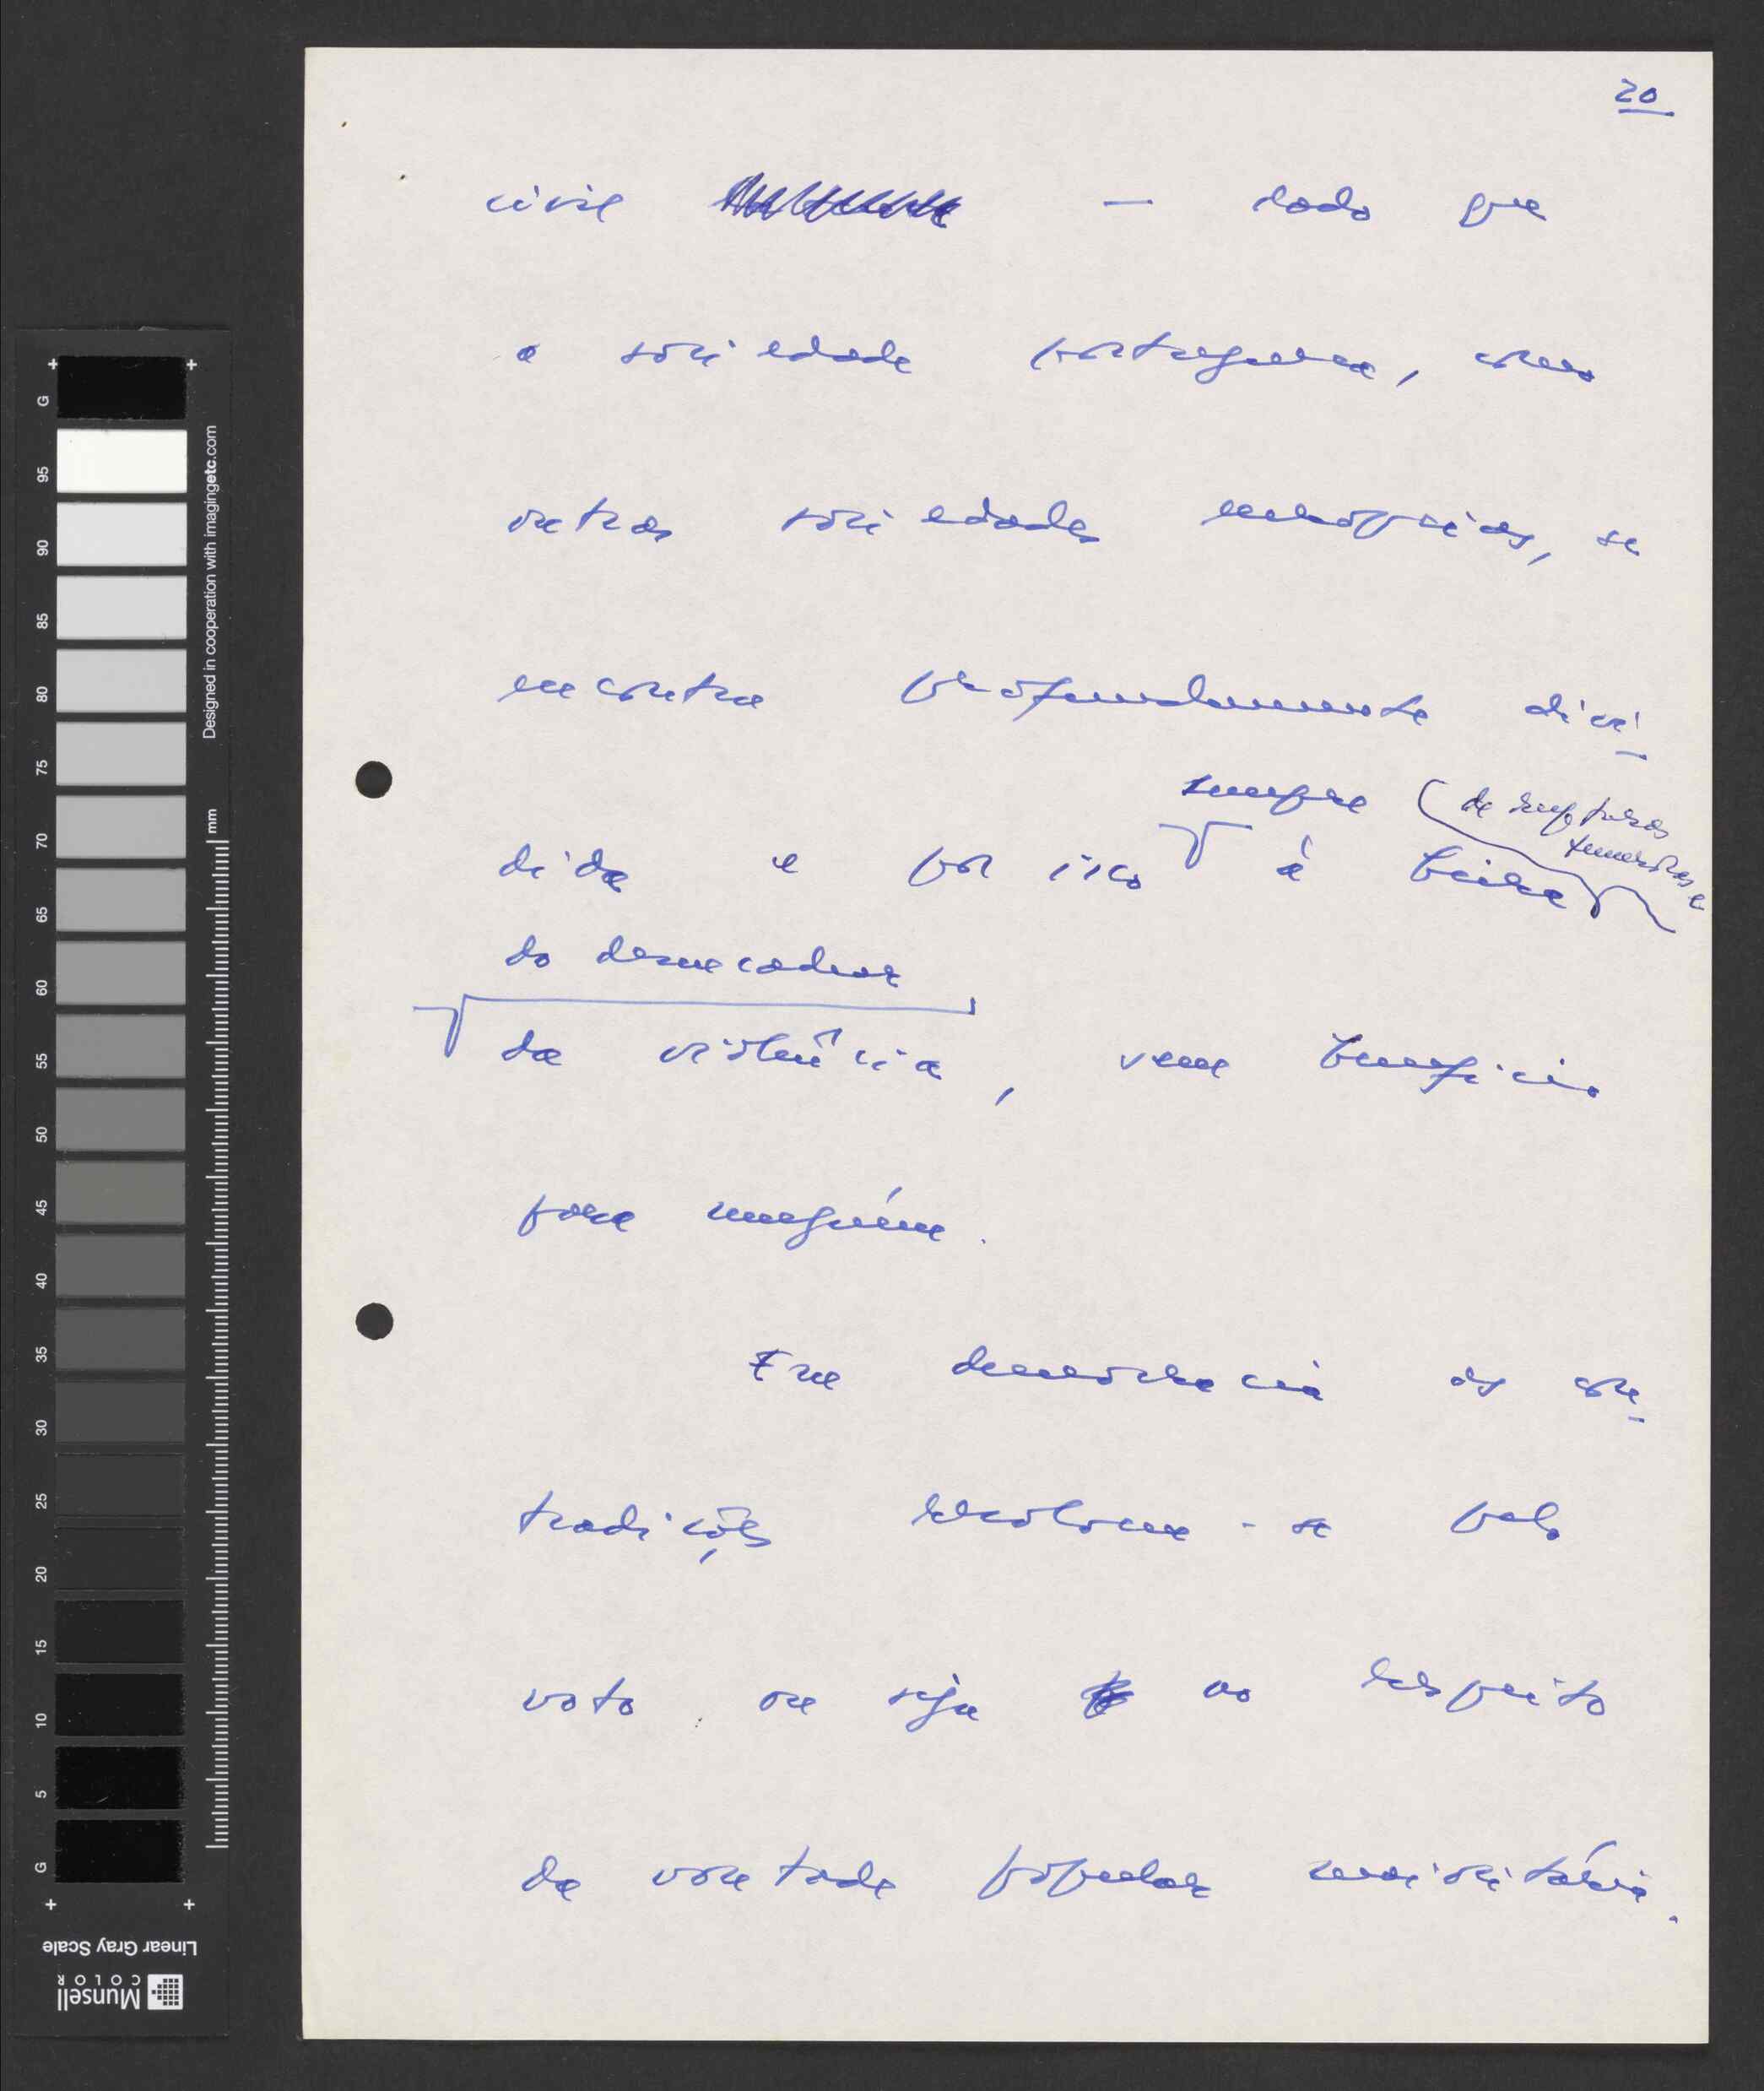 20
civil — dado que
a sociedade portuguesa, como
outras sociedades europeias, se
encontra profundamente divi-
sempre (de rupturas
dida e por isso à beira
do desencadear
da violência, sem benefício
para ninguém.
Em democracia as con-
tradições resolvem-se pelo
voto ou seja no respeito
da vontade popular maioritária.
G
95
90
85
80
75
70
65
60
55
50
45
40
35
30
25
20
15
10
5
G
mm
Designed in cooperation with imagingetc.com
Linear Gray Scale
Munsell
COLOR